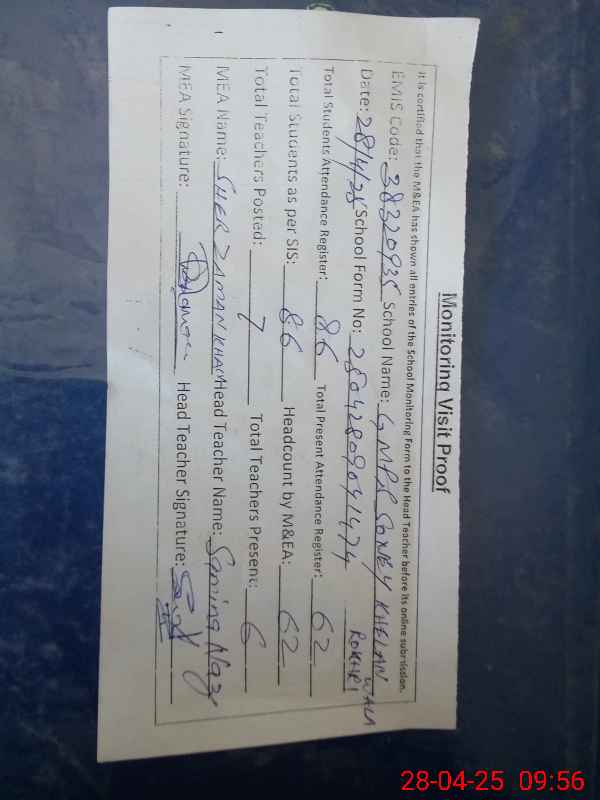 Monitoring Visit Proof
It is certified that the M&EA has shown all entries of the School Monitoring Form to the Head Teacher before its online submission.
EMIS Code: 38320935 School Name: GMPS SONEY KHELAN WALA ROKHRI
Date: 28/4/25 School Form No: 28042809041474
Total Students Attendance Register: 86 Total Present Attendance Register: 62
Total Students as per SIS: 86 Headcount by M&EA: 62
Total Teachers Posted: 7 Total Teachers Present: 6
MEA Name: SHER ZAMAN KHAN Head Teacher Name: Samina Naz
MEA Signature: Head Teacher Signature:
28-04-25 09:56